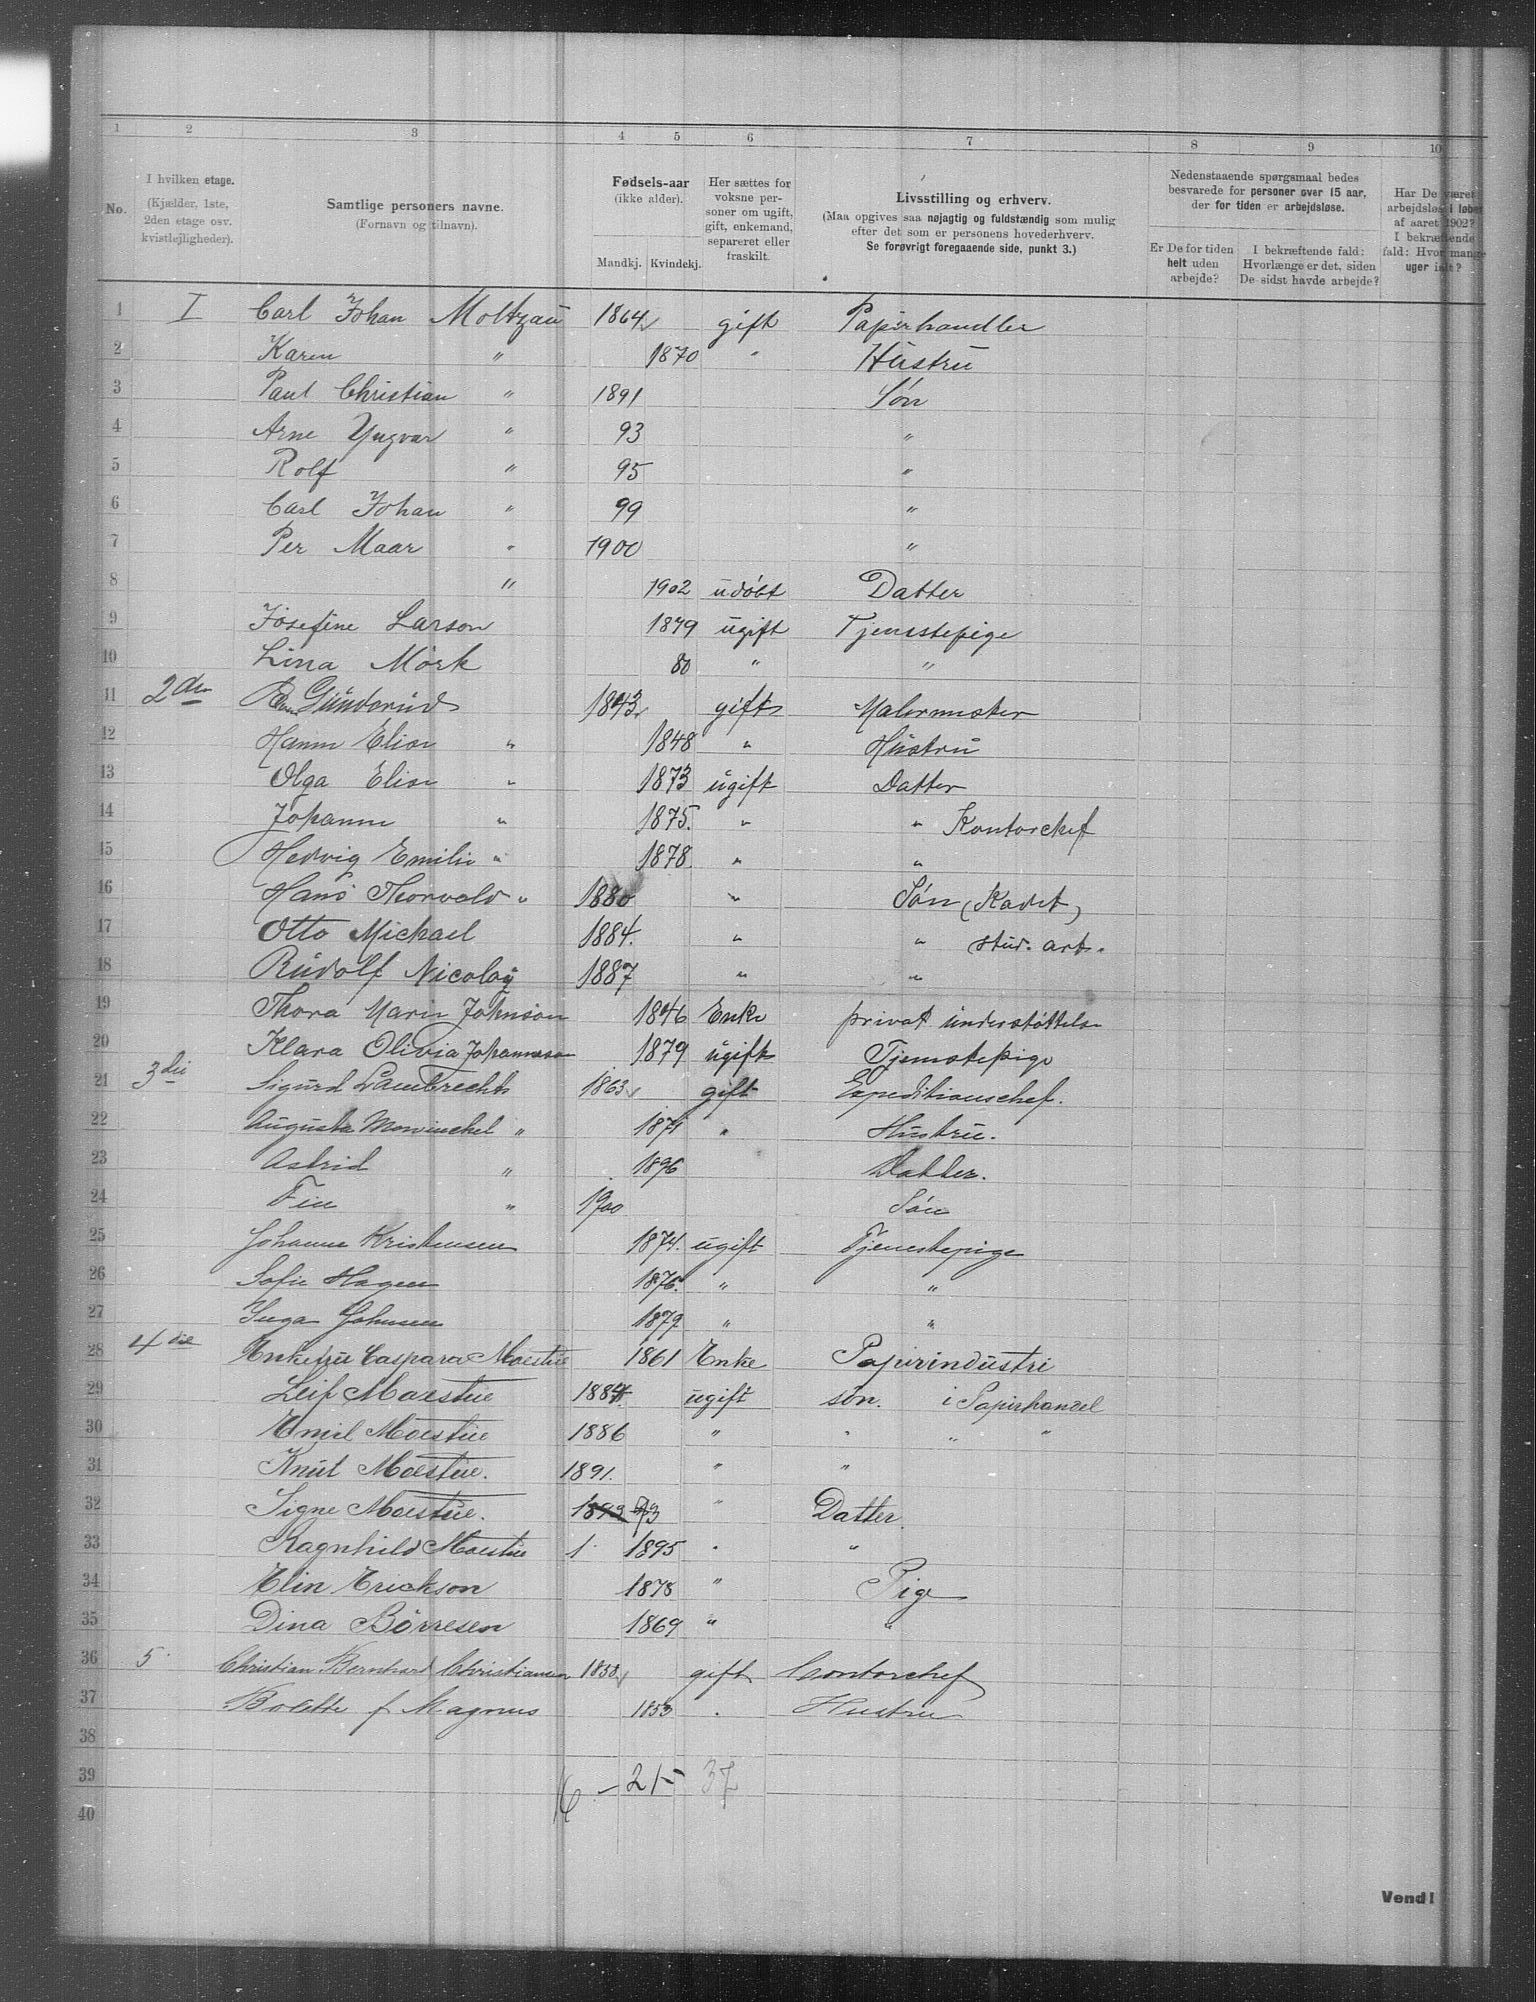 1 2 3 4 5 6 7 8 9 10
No.
I hvilken etage.
(Kjælder, 1ste,
2den etage osv.
kvistlejligheder).
Samtlige personers navne.
(Fornavn og tilnavn).
Fødsels-aar
(ikke alder).
Mandkj. Kvindekj.
Her sættes for
voksne per-
soner om ugift,
gift, enkemand,
separeret eller
fraskilt.
Livsstilling og erhverv.
(Maa opgives saa nøjagtig og fuldstændig som mulig
efter det som er personens hovederhverv.
Se forøvrigt foregaaende side, punkt 3.)
Nedenstaaende spørgsmaal bedes
besvarede for personer over 15 aar,
der for tiden er arbejdsløse.
Er De for tiden
helt uden
arbejde?
I bekræftende fald:
Hvorlænge er det, siden
De sidst havde arbejde?
Har De været
arbejdsløs i løbet
af aaret 1902?
I bekræftende
fald: Hvor mange
uger ialt?
1 I Carl Johan Moltzau 1864 gift Papirhandler
2 Karen " 1870 " Hustru
3 Paul Christian " 1891 Søn
4 Arne Yngvar " 93 "
5 Rolf " 95 "
6 Carl Johan " 99 "
7 Per Maar " 1900 "
8 " 1902 udøbt Datter
9 Josefine Larson 1879 ugift Tjenstepige
10 Lina Mörk 80 " "
11 2den Gunderud 1843 gift Malermester
12 Hanna Elise " 1848 " Hustru
13 Olga Elise " 1873 ugift Datter
14 Johanne " 1875. " " Kontorchef
15 Hedvig Emilie " 1878 " "
16 Hans Thorvald " 1880 " Søn (Kadet)
17 Otto Michael 1884. " " stud. art.
18 Rudolf Nicolay 1887 " "
19 Thora Marie Johnson 1846 Enke privat understøttelse
20 Klara Olivia Johannesson 1879 ugift Tjenstepige
21 3die Sigurd Lambrechts 1863 gift Expeditionschef.
22 Augusta Mowinckel " 1871 " Hustru.
23 Astrid " 1896 Datter.
24 Fin " 1900 Søn
25 Johanne Kristensen 1874. ugift Tjenestepige
26 Sofie Hagen 1876. " "
27 Inga Johnsen 1879 " "
28 4die Enkefru Caspara Moestue 1861 Enke Papirindustri
29 Leif Moestue 1884. ugift søn. i Papirhandel
30 Emil Moestue 1886 " " " "
31 Knut Moestue. 1891. " "
32 Signe Moestue. 1893 93 " Datter.
33 Ragnhild Moestue 1 1895 " "
34 Elin Erickson 1878 " Pige
35 Dina Börresen 1869 " "
36 5 Christian Bernhard Christiansen 1858 gift Contorchef
37 Bolette f Magnus 1853 " Hustru
38
39 16 – 21 – 37
40
Vend!